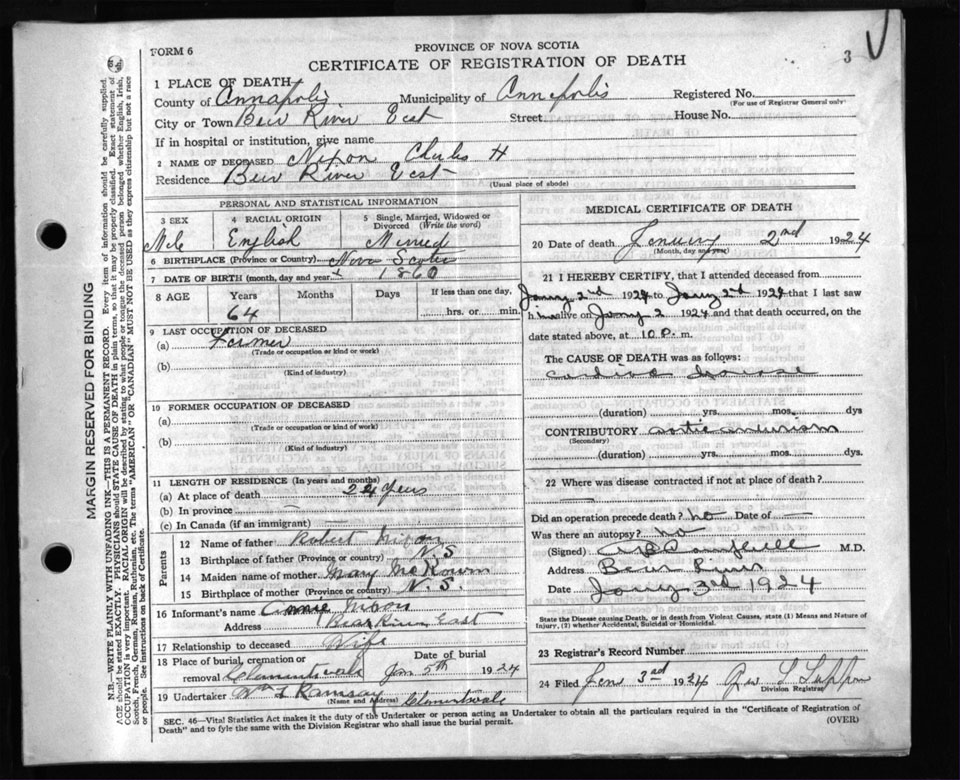 FORM 6
PROVINCE OF NOVA SCOTIA
CERTIFICATE OF REGISTRATION OF DEATH
3
1 PLACE OF DEATH
County of Annapolis Municipality of Annapolis Registered No.
(For use of Registrar General only)
City or Town Bear River East Street House No.
If in hospital or institution, give name
2 NAME OF DECEASED Nixon Charles H
Residence Bear River East
(Usual place of abode)
PERSONAL AND STATISTICAL INFORMATION
3 SEX 4 RACIAL ORIGIN 5 Single, Married, Widowed or Divorced (Write the word)
Male English Married
6 BIRTHPLACE (Province or Country) Nova Scotia
7 DATE OF BIRTH (month, day and year) 1860
8 AGE Years Months Days If less than one day,
64 hrs. or min.
9 LAST OCCUPATION OF DECEASED
(a) Farmer
(Trade or occupation or kind or work)
(b)
(Kind of industry)
10 FORMER OCCUPATION OF DECEASED
(a)
(Trade or occupation or kind or work)
(b)
(Kind of industry)
11 LENGTH OF RESIDENCE (In years and months)
(a) At place of death 24 years
(b) In province —
(c) In Canada (if an immigrant) —
Parents
12 Name of father Robert Nixon
13 Birthplace of father (Province or country) N.S
14 Maiden name of mother Mary McKown
15 Birthplace of mother (Province or country) N.S.
16 Informant's name Annie Nixon
Address Bear River East
17 Relationship to deceased Wife
18 Place of burial, cremation or removal Clementsvale Date of burial Jan 5th 1924
19 Undertaker Wm Ramsay Clementsvale
(Name and Address)
MEDICAL CERTIFICATE OF DEATH
20 Date of death January 2nd 1924
(Month, day and year)
21 I HEREBY CERTIFY, that I attended deceased from
Jany 2nd 1924 to Jany 2nd 1924 that I last saw
h im alive on Jany 2 1924 and that death occurred, on the
date stated above, at 10 P. m.
The CAUSE OF DEATH was as follows:
cardiac disease
(duration) yrs. mos. dys
CONTRIBUTORY aortic aneurism
(Secondary)
(duration) yrs. mos. dys.
22 Where was disease contracted if not at place of death?
—
Did an operation precede death? no Date of —
Was there an autopsy? no
(Signed) Campbell M.D.
Address Bear River
Date Jany 3rd 1924
State the Disease causing Death, or in death from Violent Causes, state (1) Means and Nature of
Injury, (2) whether Accidental, Suicidal or Homicidal.
23 Registrar's Record Number
24 Filed Jan 3rd 1924
Division Registrar
SEC. 46—Vital Statistics Act makes it the duty of the Undertaker or person acting as Undertaker to obtain all the particulars required in the "Certificate of Registration of
Death" and to fyle the same with the Division Registrar who shall issue the burial permit.
(OVER)
MARGIN RESERVED FOR BINDING
N.B.—WRITE PLAINLY WITH UNFADING INK—THIS IS A PERMANENT RECORD. Every item of information should be carefully supplied.
AGE should be stated EXACTLY. PHYSICIANS should STATE CAUSE OF DEATH in plain terms, so that it may be properly classified. Exact statement of
OCCUPATION is very important. RACIAL ORIGIN will be described by stating to what people or tongue the deceased person belonged whether English, Irish,
Scotch, French, German, Russian, Ruthenian, etc. The terms "AMERICAN" OR "CANADIAN" MUST NOT BE USED as they express citizenship but not a race
or people. See instructions on back of Certificate.